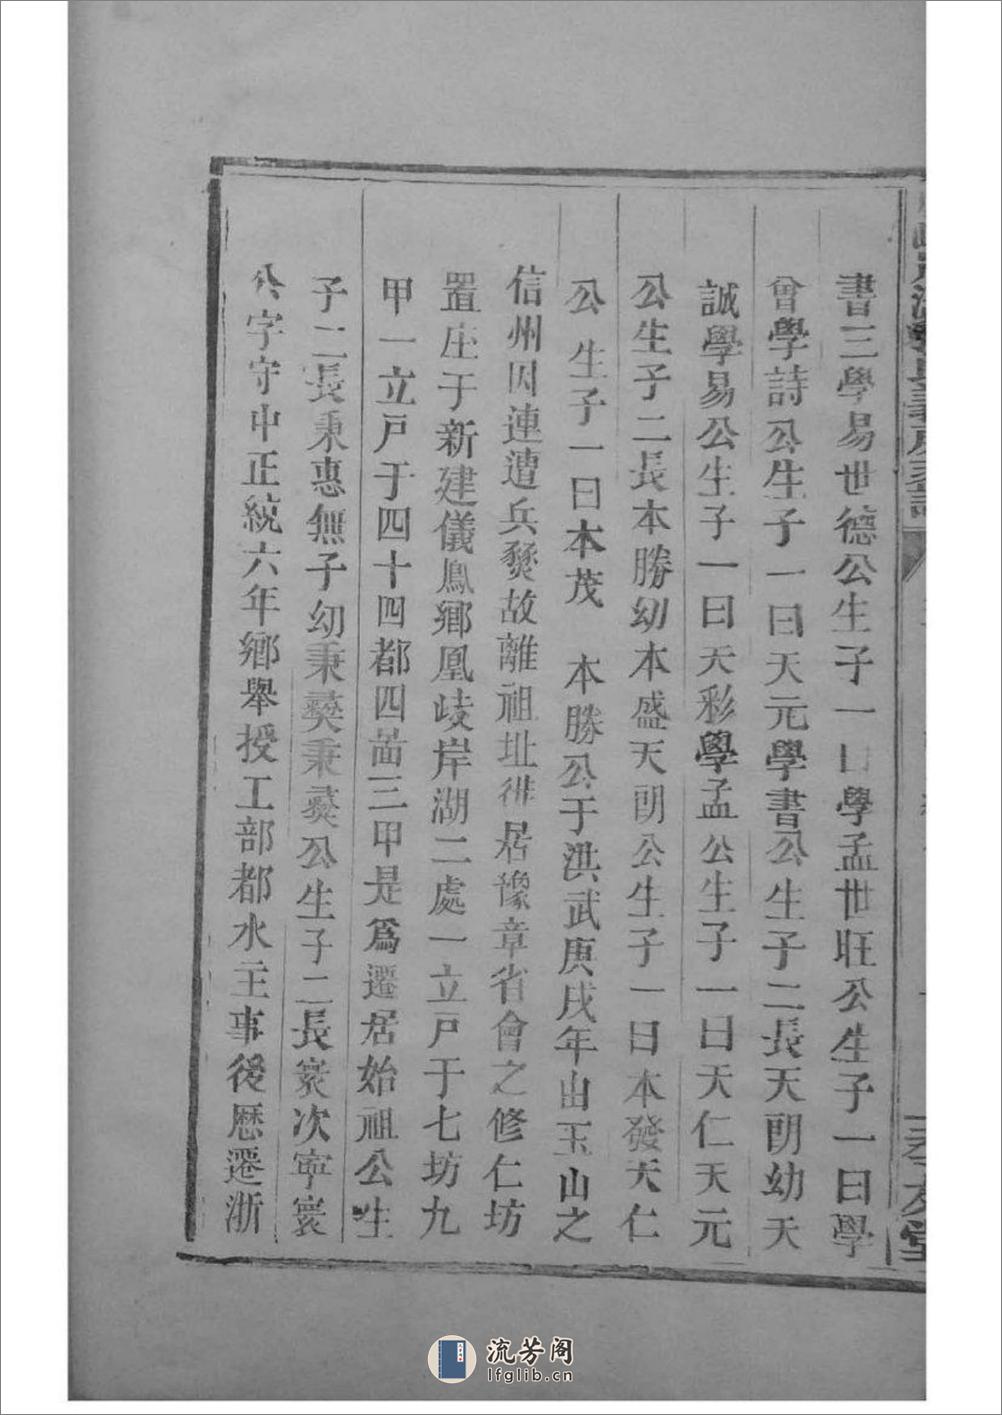 書三學易世德公生子一曰學孟世旺公生子一曰學
曾學詩公生子一曰天元學書公生子二長天朗幼天
誠學易公生子一曰天彩學孟公生子一曰天仁天元
公生子二長本勝幼本盛天朗公生子一曰本發天仁
公生子一曰本茂 本勝公于洪武庚戌年由玉山之
信州因連遭兵燹故離祖址徙居豫章省會之修仁坊
置庄于新建儀鳳鄉凰歧岸湖二處一立戸于七坊九
甲一立戸于四十四都四啚三甲是爲遷居始祖公生
子二長秉惠無子幼秉彝秉彝公生子二長寂次寧寰
公字守中正統六年鄉舉授工部都水主事後歴遷浙
堂
流芳阁
lfglib.cn